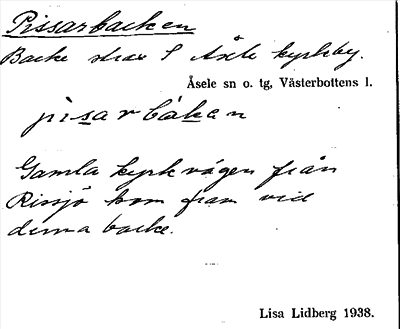 Pissarbacken
Backe strax S Åsele kyrkby.
Åsele sn o. tg, Västerbottens l.
pisarbakan
Gamla kyrkvägen från
Rissjö kom fram vid
denna backe.
Lisa Lidberg 1938.